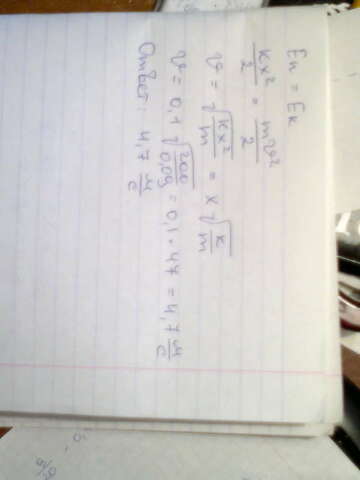 Eп = Eк
kx²/2 = mv²/2
v = √(kx²/m) = x√(k/m)
v = 0,1 √(200/0,09) = 0,1 · 47 = 4,7 м/с
Ответ: 4,7 м/с